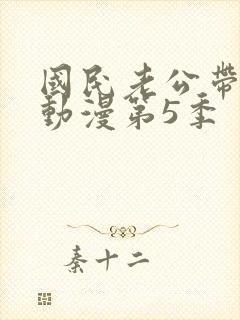 國民老公帶
動漫第5季
秦十二